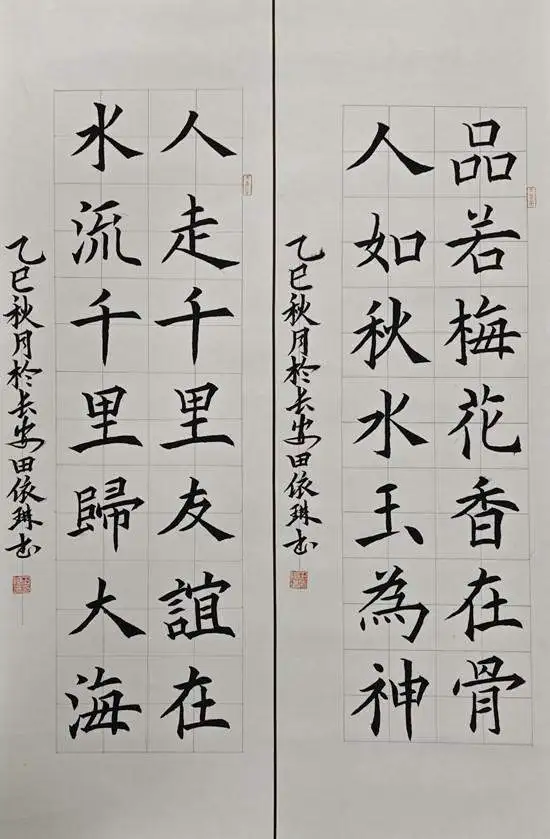 品若梅花香在骨
人如秋水玉為神
乙巳秋月於长安田依琳书
人走千里友誼在
水流千里歸大海
乙巳秋月於长安田依琳书